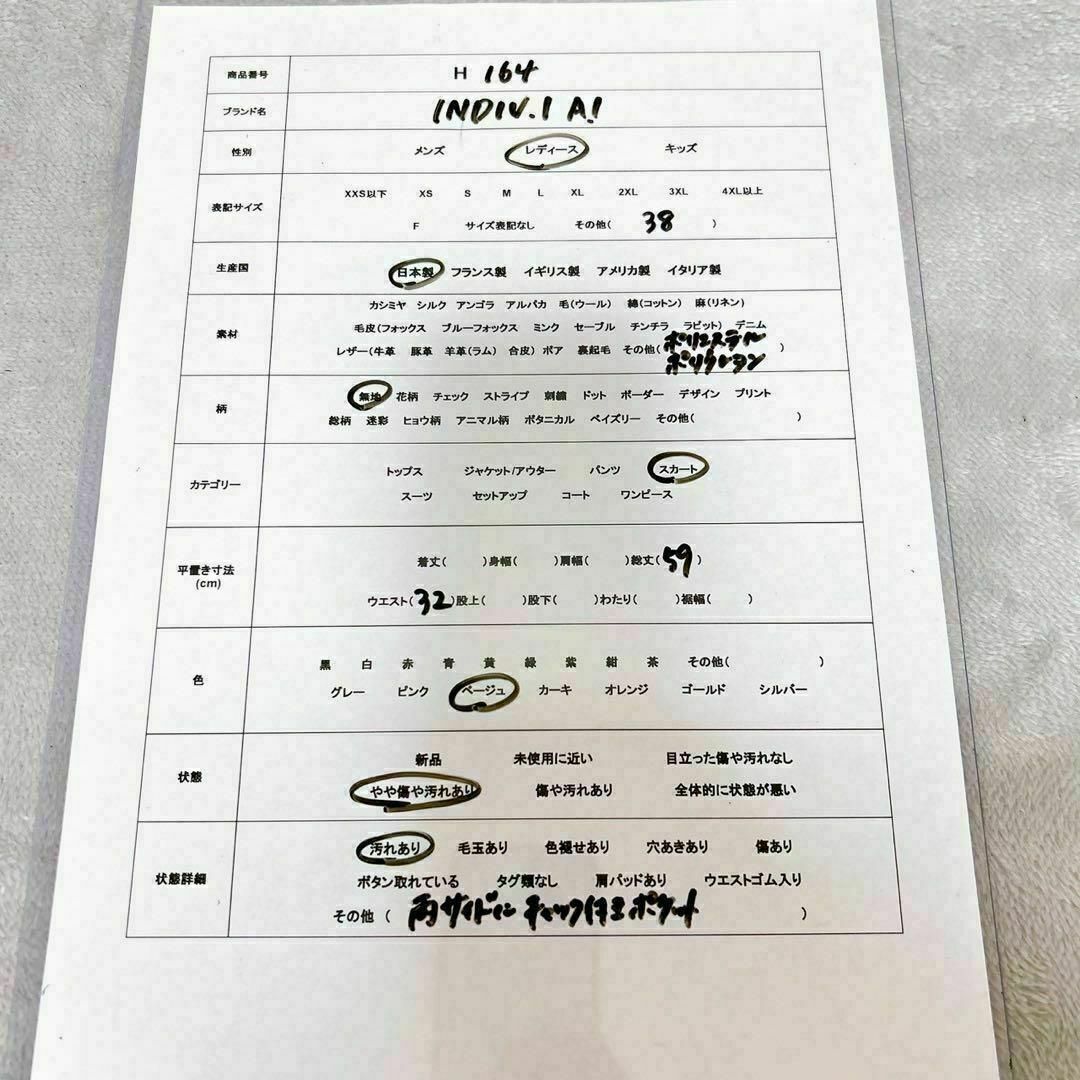 商品番号 H 164
ブランド名 INDIV.I A.I
性別 メンズ レディース キッズ
表記サイズ XXS以下 XS S M L XL 2XL 3XL 4XL以上
F サイズ表記なし その他( 38 )
生産国 日本製 フランス製 イギリス製 アメリカ製 イタリア製
素材 カシミヤ シルク アンゴラ アルパカ 毛(ウール) 綿(コットン) 麻(リネン)
毛皮(フォックス ブルーフォックス ミンク セーブル チンチラ ラビット) デニム
レザー(牛革 豚革 羊革(ラム) 合皮) ボア 裏起毛 その他( ポリエステル
ポリウレタン )
柄 無地 花柄 チェック ストライプ 刺繍 ドット ボーダー デザイン プリント
総柄 迷彩 ヒョウ柄 アニマル柄 ボタニカル ペイズリー その他( )
カテゴリー トップス ジャケット/アウター パンツ スカート
スーツ セットアップ コート ワンピース
平置き寸法
(cm)
着丈( )身幅( )肩幅( )総丈( 59 )
ウエスト( 32 )股上( )股下( )わたり( )裾幅( )
色 黒 白 赤 青 黄 緑 紫 紺 茶 その他( )
グレー ピンク ベージュ カーキ オレンジ ゴールド シルバー
状態 新品 未使用に近い 目立った傷や汚れなし
やや傷や汚れあり 傷や汚れあり 全体的に状態が悪い
状態詳細 汚れあり 毛玉あり 色褪せあり 穴あきあり 傷あり
ボタン取れている タグ類なし 肩パッドあり ウエストゴム入り
その他 ( 両サイドに チャック付き ポケット )